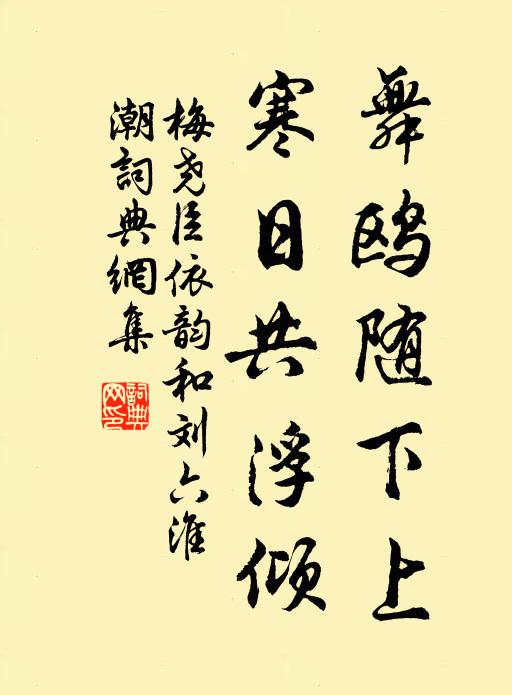 舞鸥随下上
寒日共浮倾
梅尧臣依韵和刘六淮
潮詞典網集
詞典網印